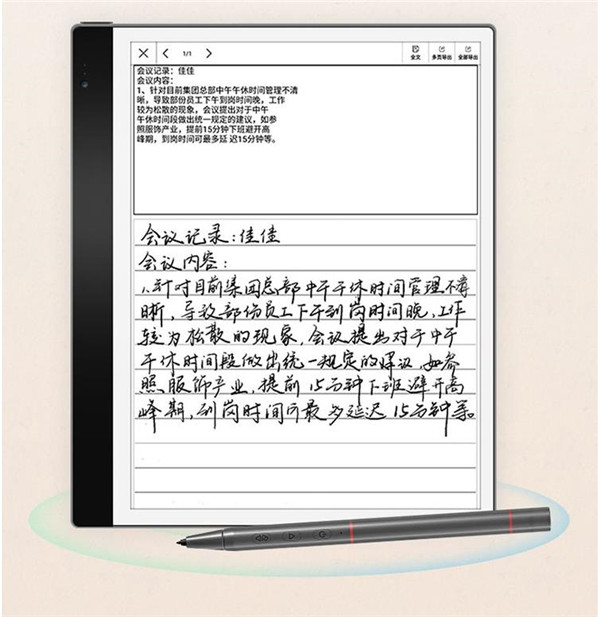 1/1
全文 多页导出 全部导出
会议记录：佳佳
会议内容：
1、针对目前集团总部中午午休时间管理不清
晰，导致部份员工下午到岗时间晚，工作
较为松散的现象，会议提出对于中午
午休时间段做出统一规定的建议，如参
照服饰产业，提前15分钟下班避开高
峰期，到岗时间可最多延 迟15分钟等。
会议记录：佳佳
会议内容：
1、针对目前集团总部中午午休时间管理不清
晰，导致部份员工下午到岗时间晚，工作
较为松散的现象，会议提出对于中午
午休时间段做出统一规定的建议，如参
照服饰产业，提前15分钟下班避开高
峰期，到岗时间可最多延迟15分钟等。